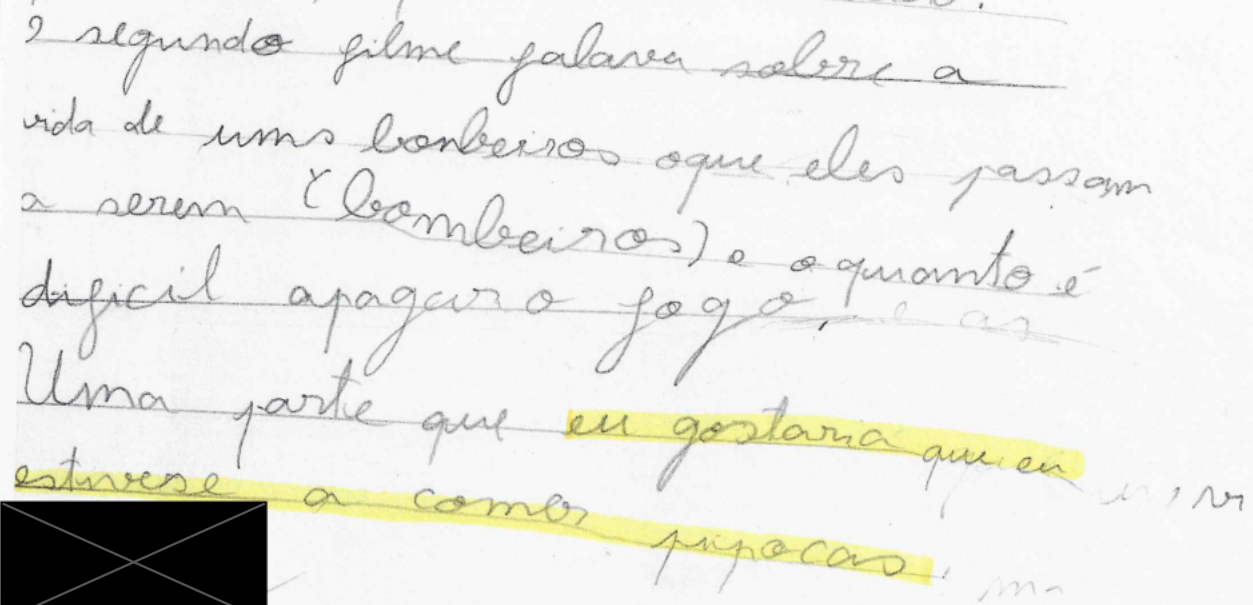 O segundo filme falava sobre a
vida de ums bonbeiros oque eles passam
a serem (bombeiros) e o quanto é
dificil apagar o fogo,
Uma parte que eu gostaria que eu
estivese a comer pipocas,